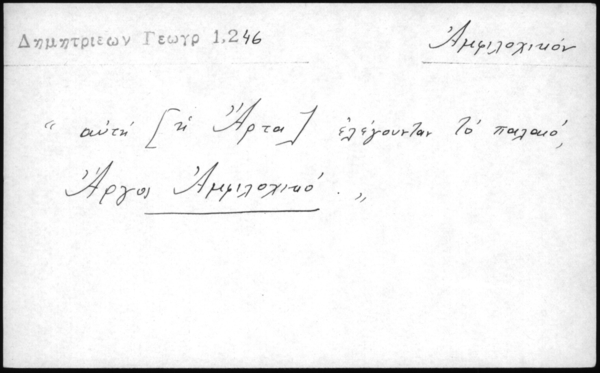 Δημητριεων Γεωγρ 1,246
Ἀμφιλοχικόν
“ αὐτὴ [ἡ Ἄρτα] ἐλέγουνταν τὸ παλαιό,
Ἄργος Ἀμφιλοχικό. „